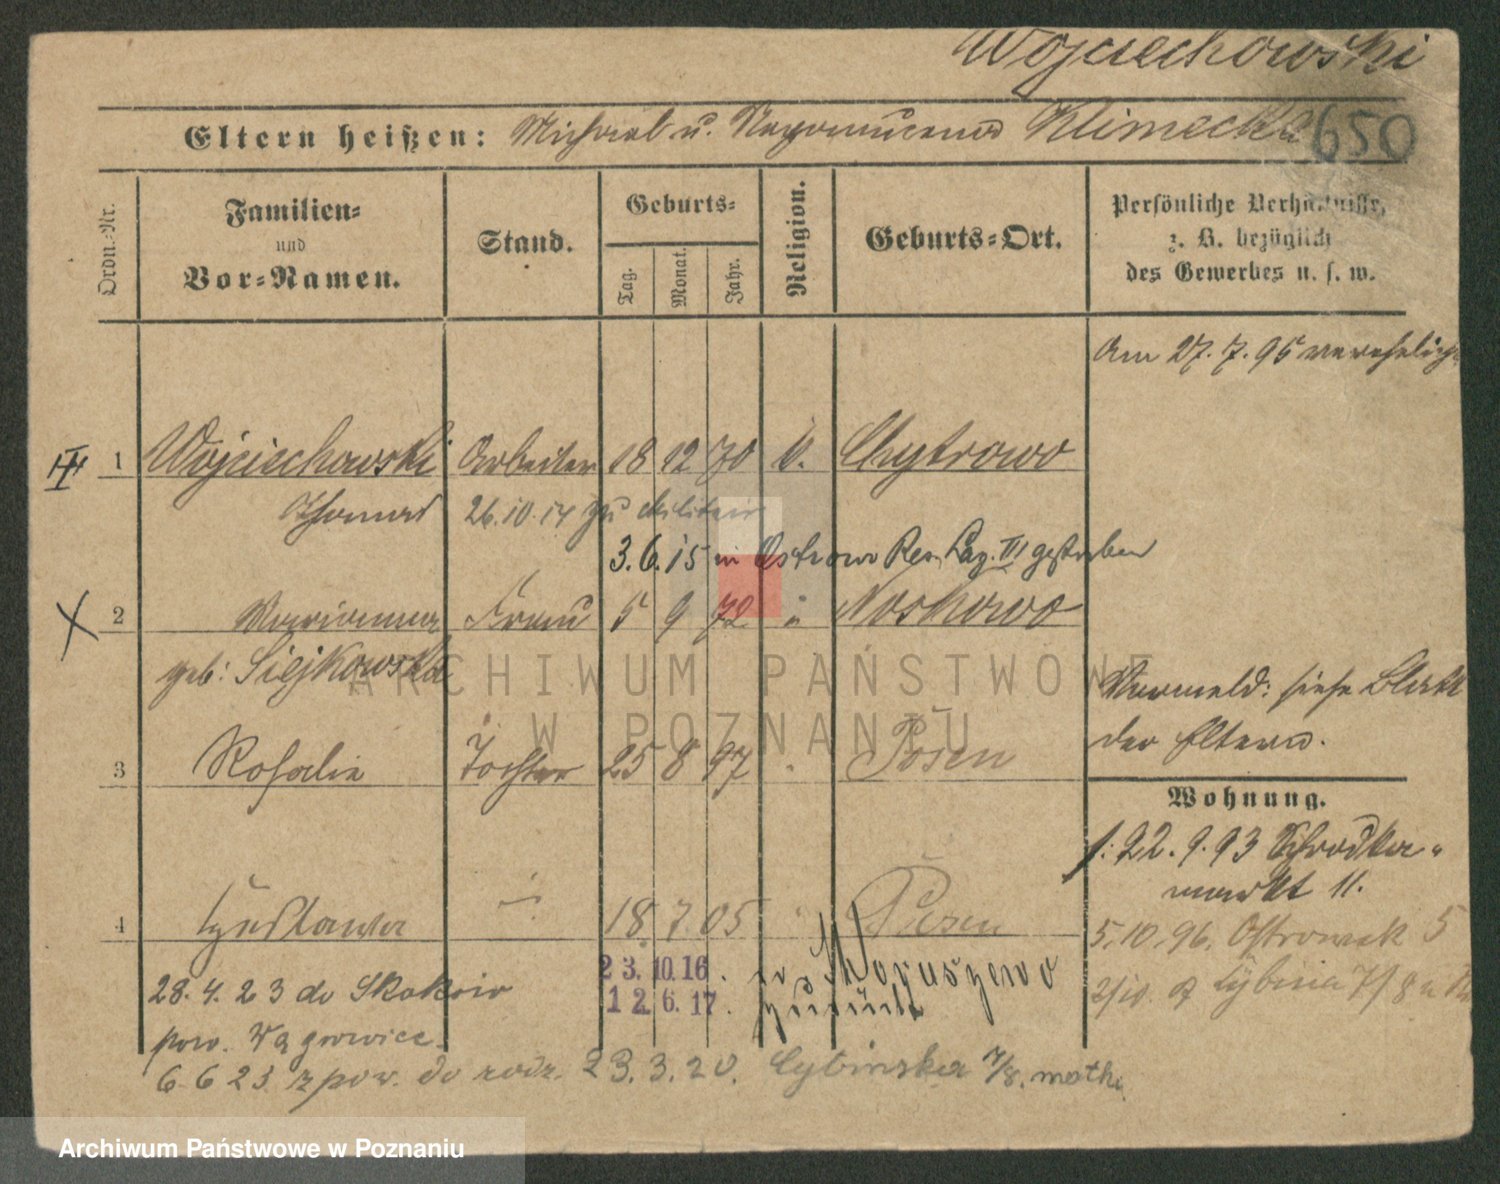 Wojciechowski
Eltern heißen: Michael u. Nepomucena Klimecka 650
Ordn.-Nr.
Familien-
und
Vor-Namen.
Stand.
Geburts-
Tag. Monat. Jahr.
Religion.
Geburts-Ort.
Persönliche Verhältnisse,
z. B. bezüglich
des Gewerbes u. s. w.
Am 27. 7. 95 verehelicht
1 Wojciechowski Arbeiter 18 12 70 Chytrowo
Thomas 26.10.14 zu Militair
3.6.15 in Ostrowo Res. Laz. III gestorben
2 Marianna Frau 5 9 72 Noskowo
geb: Siejkowska
Vormeld: siehe Blatt
der Eltern.
3 Rosalie Tochter 25 8 97 Posen
Wohnung.
1: 22. 9. 93 Schrodka-
markt 11.
4 Gustawa 18. 7. 05 Posen
5.10.96. Ostrowek 5
23. 10. 16
12. 6. 17. zurück
2/10. Cybina 7/8
28.4.23 do Skoków
pow. Wągrowiec
6.6 23 z pow. do rodz. 23.3.20. Cybinska 7/8.
ARCHIWUM PAŃSTWOWE
W POZNANIU
Archiwum Państwowe w Poznaniu